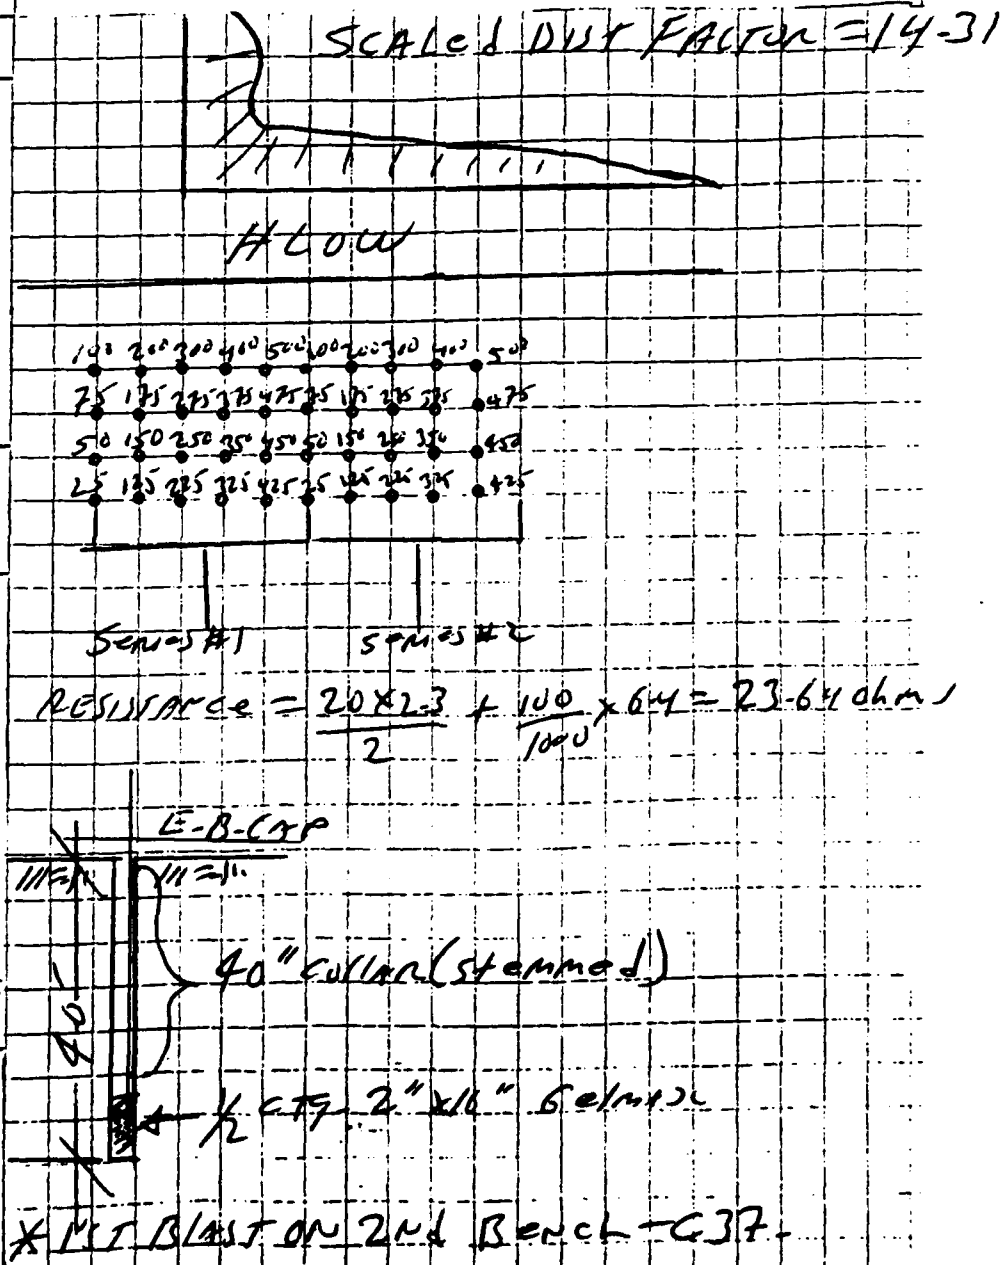 SCALed DIST FACTOR = 14-31
H LOW
100 200 300 400 500 100 200 300 400 500
75 175 275 375 475 75 175 275 375 475
50 150 250 350 450 50 150 250 350 450
25 125 225 325 425 25 125 225 325 425
Series #1 series #2
RESISTANCE = 20 X 2.3 / 2 + 100 / 1000 X 6.4 = 23.64 ohms
E-B-CAP
40" Collar (stemmed)
40'
1/2 CTG 2" X 16" Gelmax
* 1ST BLAST ON 2nd Bench - C37.